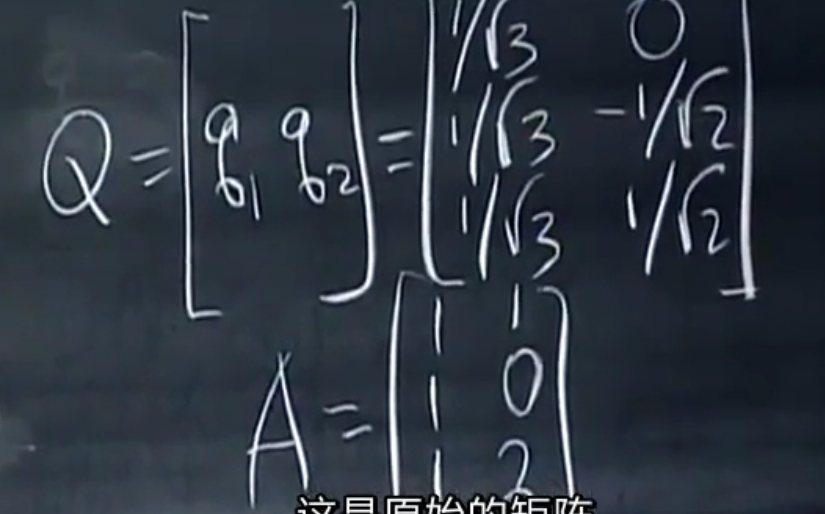 Q = [q₁ q₂] = [1/√3 0
1/√3 -1/√2
1/√3 1/√2]
A = [1 1
1 0
1 2]
这是原始的矩阵